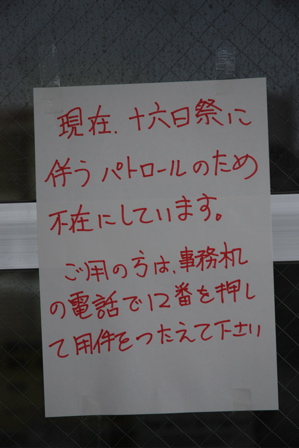 現在、十六日祭に
伴うパトロールのため
不在にしています。
ご用の方は、事務机
の電話で12番を押し
て用件をつたえて下さい